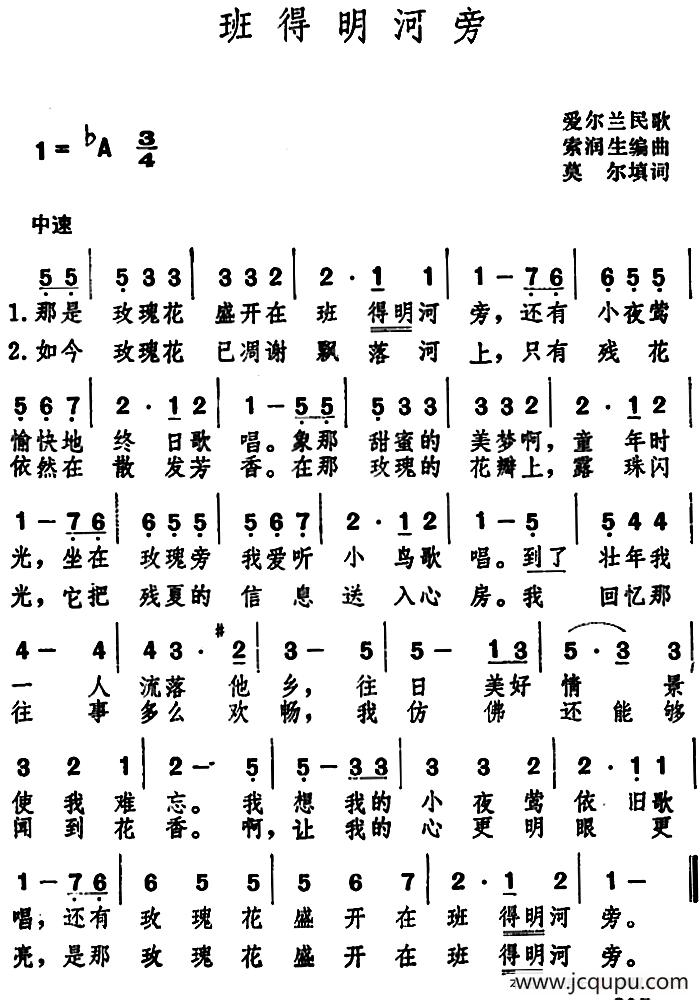 班得明河旁
爱尔兰民歌
1=♭A 3/4 索润生编曲
莫尔填词
中速
5 5 | 5 3 3 | 3 3 2 | 2 · 1 1 | 1 – 7 6 | 6 5 5 |
1.那是 玫瑰花 盛开在 班得明河 旁，还有 小夜莺
2.如今 玫瑰花 已凋谢 飘落河 上，只有 残花
5 6 7 | 2 · 1 2 | 1 – 5 5 | 5 3 3 | 3 3 2 | 2 · 1 1 |
愉快地 终日歌 唱。象那 甜蜜的 美梦啊，童年时
依然在 散发芳 香。在那 玫瑰的 花瓣上，露珠闪
1 – 7 6 | 6 5 5 | 5 6 7 | 2 · 1 2 | 1 – 5 | 5 4 4 |
光，坐在 玫瑰旁 我爱听 小鸟歌 唱。到了 壮年我
光，它把 残夏的 信息送 入心 房。我 回忆那
4 – 4 | 4 3 · #2 | 3 – 5 | 5 – 1 3 | 5 · 3 3 |
一人 流落他 乡，往 日美好 情景
往事 多么欢 畅，我 仿佛 还能够
3 2 1 | 2 – 5 | 5 – 3 3 | 3 2 2 | 2 · 1 1 |
使我难 忘。我 想我的 小夜莺 依旧歌
闻到花 香。啊， 让我的 心更明 眼更
1 – 7 6 | 6 5 5 | 5 6 7 | 2 · 1 2 | 1 – ‖
唱，还有 玫瑰花 盛开在 班得明河 旁。
亮，是那 玫瑰花 盛开在 班得明河 旁。
www.jcqupu.com